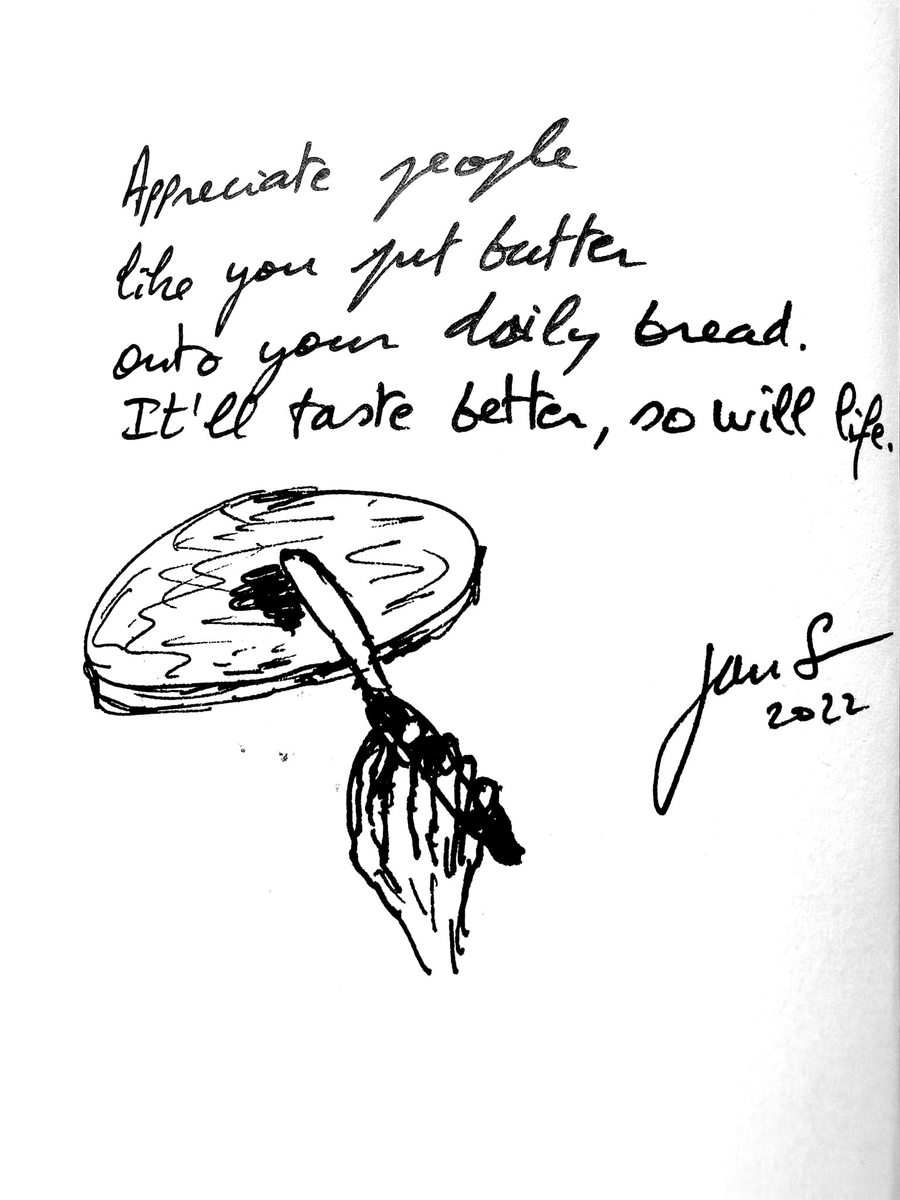 Appreciate people
like you put butter
onto your daily bread.
It'll taste better, so will life.
Jan S
2022